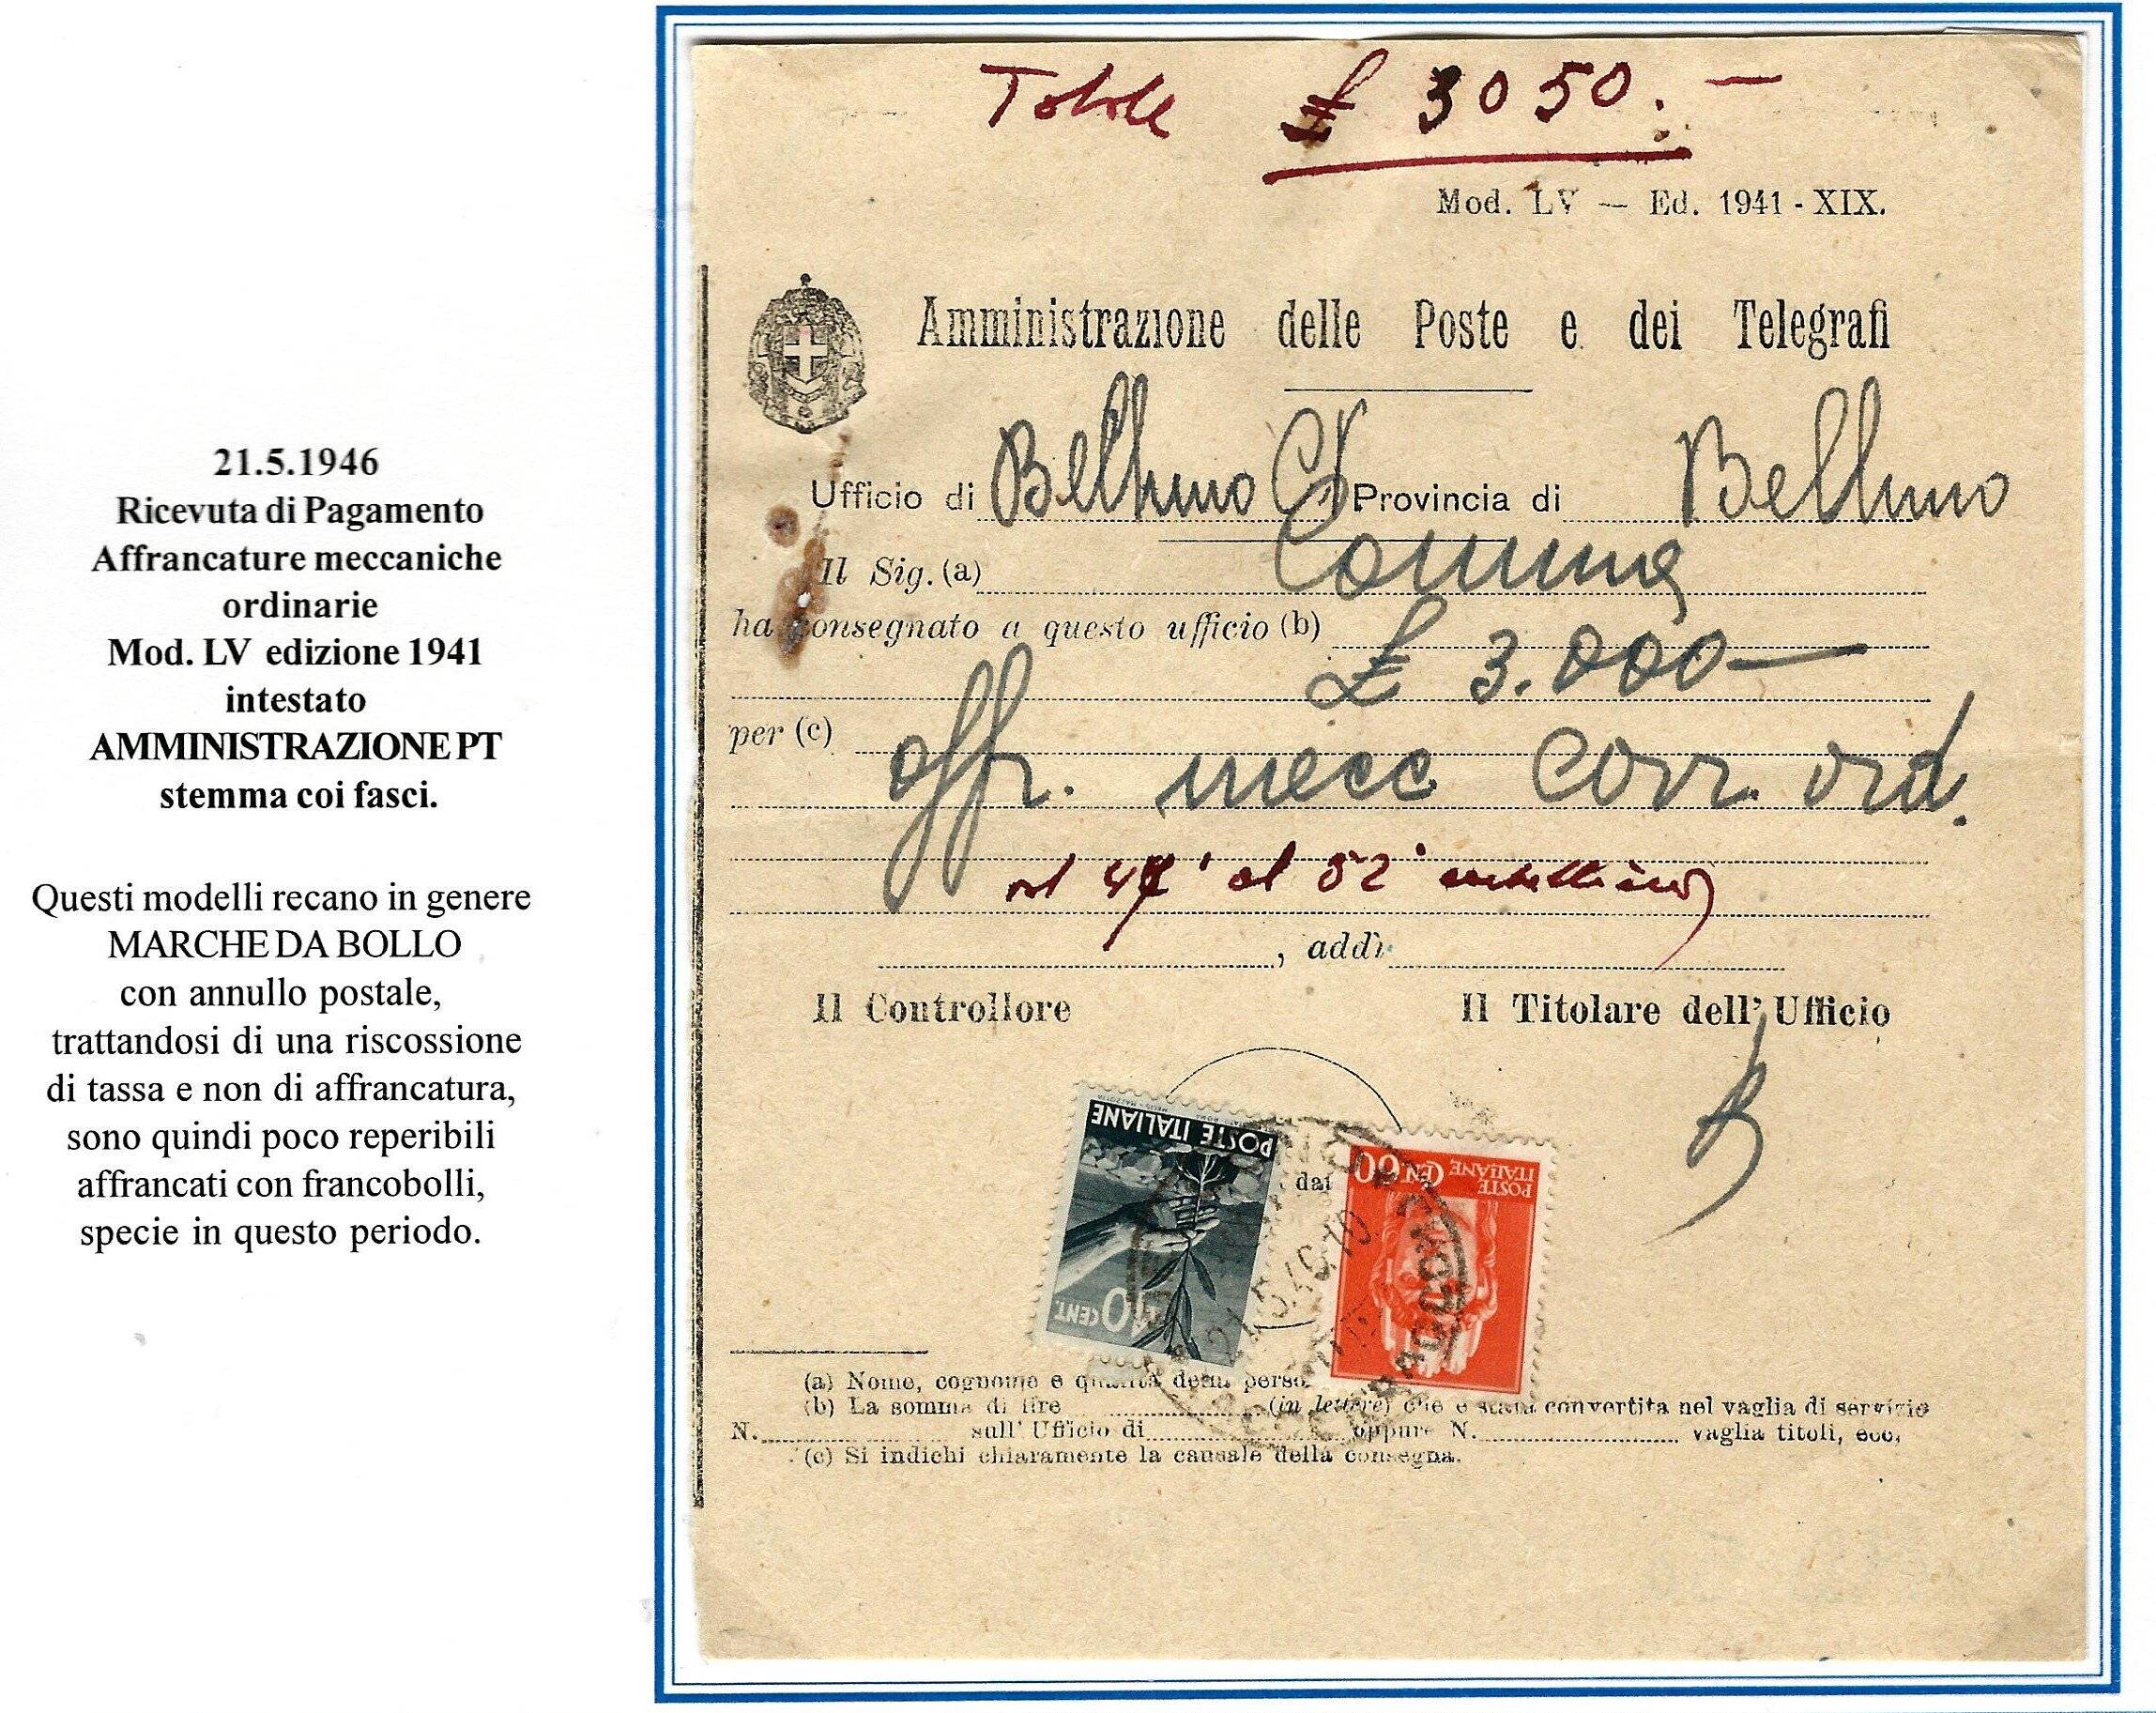 21.5.1946
Ricevuta di Pagamento
Affrancature meccaniche
ordinarie
Mod. LV edizione 1941
intestato
AMMINISTRAZIONE PT
stemma coi fasci.
Questi modelli recano in genere
MARCHE DA BOLLO
con annullo postale,
trattandosi di una riscossione
di tassa e non di affrancatura,
sono quindi poco reperibili
affrancati con francobolli,
specie in questo periodo.
Totale £ 3050.-
Mod. LV — Ed. 1941 - XIX.
Amministrazione delle Poste e dei Telegrafi
Ufficio di Belluno Provincia di Belluno
Il Sig. (a) Comune
ha consegnato a questo ufficio (b)
£ 3.000
per (c)
affr. mecc corr. ord.
al 52°
, addì
Il Controllore Il Titolare dell' Ufficio
POSTE ITALIANE
CENT.
dat
POSTE ITALIANE CEN. 60
(a) Nome, cognome e qualità della perso
(b) La somma di lire (in lettere) che è stata convertita nel vaglia di servizio
N. sull' Ufficio di oppure N. vaglia titoli, ecc,
(c) Si indichi chiaramente la causale della consegna.